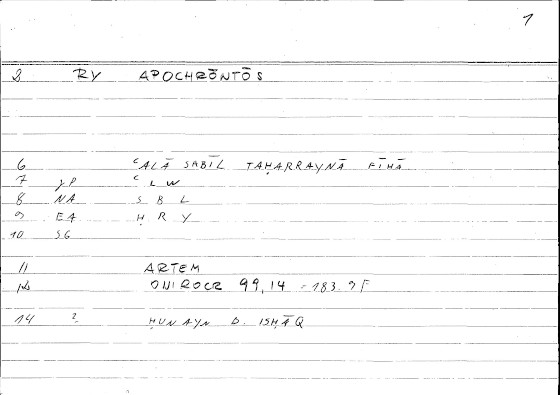 1
2 RY APOCHRŌNTŌS
6 ʿALĀ SABĪL TAḤARRAYNĀ FĪHĀ
7 γP ʿ L W
8 NA S B L
9 EA Ḥ R Y
10 SG
11 ARTEM
12 ONIROCR 99,14 = 183. 9F
14 ? ḤUNAYN B. ISḤĀQ